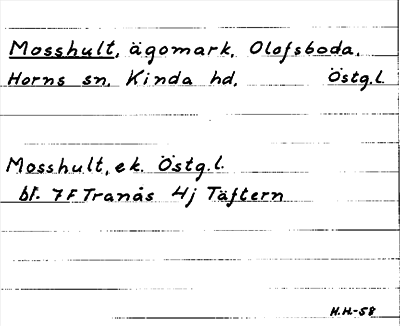 Mosshult, ägomark, Olofsboda,
Horns sn, Kinda hd, Östg.l.
Mosshult, ek. Östg.l.
bl. 7F Tranås 4j Täftern
H.H.-58